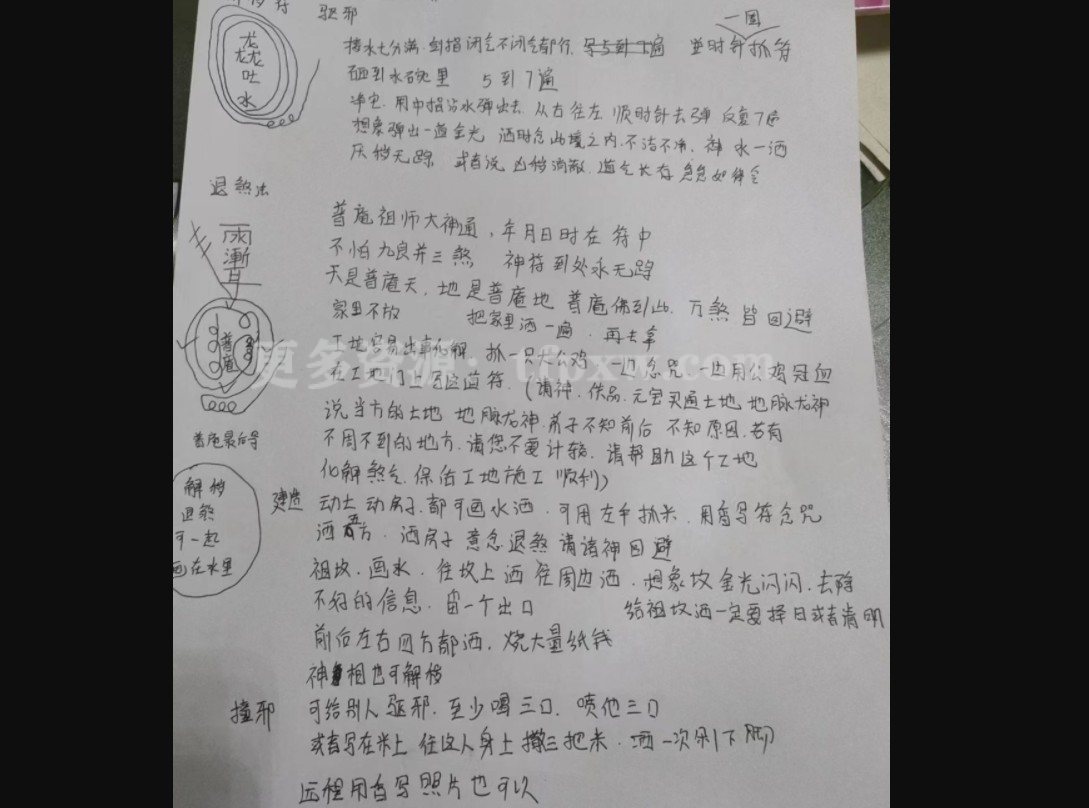 驱邪
一圈
龙
龙龙
吐
水
接水七分满 剑指闭气不闭气都行 写5到7遍 逆时针抓符
砸到水碗里 5到7遍
净宅 用中指沾水弹出去 从右往左 顺时针去弹 反复7遍
想象弹出一道金光 洒时念此境之内 不洁不净 神水一洒
灰秽无踪 或者说 凶秽消散 道气长存 急急如律令
退煞法
普庵祖师大神通，年月日时在符中
不怕九良并三煞 神符到处永无踪
天是普庵天，地是普庵地 普庵佛到此 万煞皆回避
家里不放 把家里洒一遍 再去拿
雨
渐
耳
普庵
工地容易出事化解 抓一只大公鸡 一边念咒 一边用公鸡冠血
在工地门上画这道符（请神、供品、元宝买通土地 地脉龙神
更多资源：tfbxw.com
说当方的土地 地脉龙神 弟子不知前后 不知原因 若有
普庵最后写
不周不到的地方 请您不要计较 请帮助这个工地
化解煞气 保佑工地施工顺利）
解秽
退煞
可一起
画在水里
建造 动土 动房子 都可画水洒 可用左手抓米 用香写符念咒
洒五方 洒房子 意念退煞 请诸神回避
祖坟 画水 往坟上洒 往周边洒 想象坟金光闪闪 去除
不好的信息 留一个出口 给祖坟洒一定要择日或者清明
前后左右四方都洒 烧大量纸钱
神相也可解秽
撞邪 可给别人驱邪 至少喝三口 喷他三口
或者写在米上 往这人身上撒三把米 洒一次剁下脚
远程用香写照片也可以